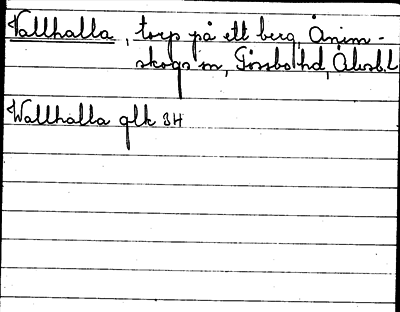 Vallhalla, torp på ett berg, Ånim-
skogs sn, Tössbo hd, Älvsb. l.
Wallhalla glk 34